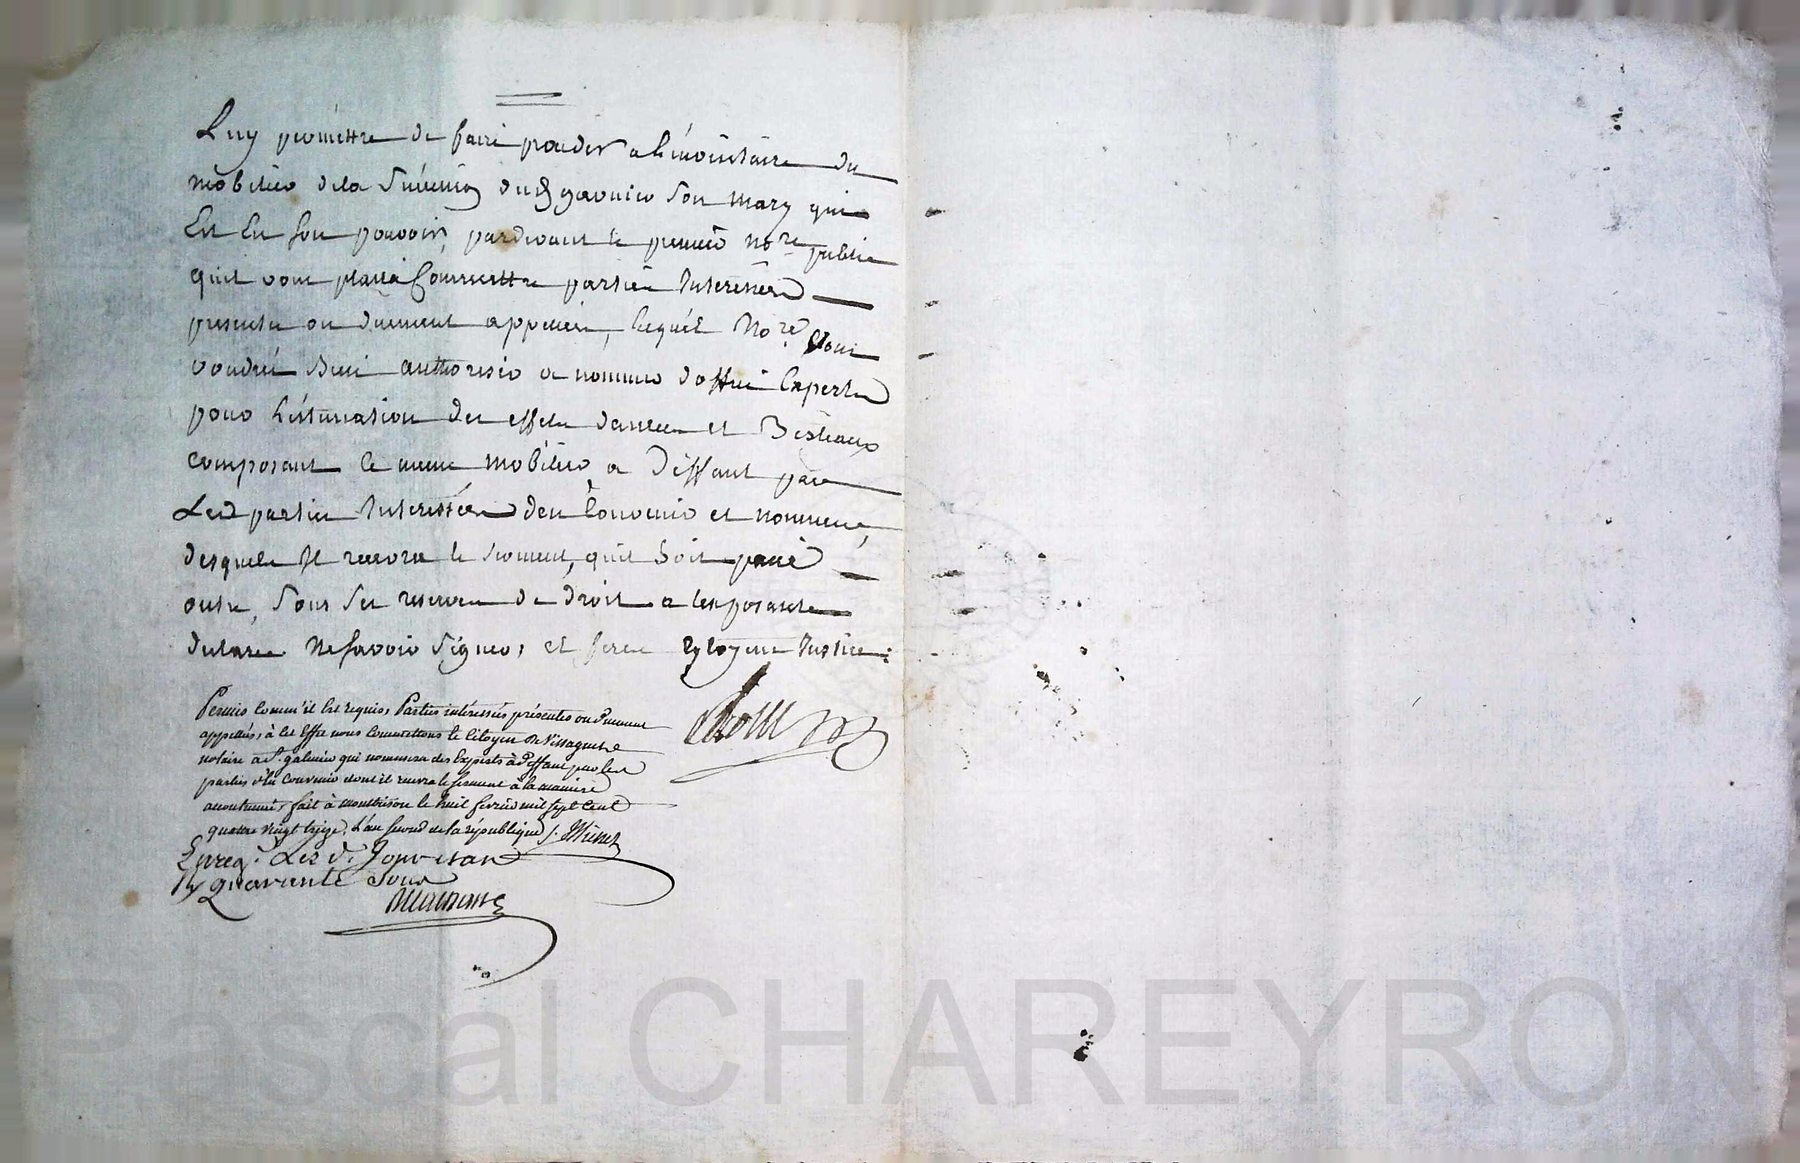 Luy permettre de faire proceder a linventaire du
mobilier dela succession dud garnier son mary qui
Est En son pouvoir, pardevant le premier no.re public
quil vous plaira Commettre parties Interessées
presentes ou duement appellées, lequel No.re vous
voudrés bien authoriser a nommer doffice Experts
pour L'estimation des effets denrées et Bestiaux
composant le meme mobilier a deffaut par
Lesd parties Interessées den Convenir et nommer
desquels Il recevra le serment, quil soit passé
outre, sous les reserves de droit a lexposante
declaree Ne savoir signer, et feres Citoyens Justice:
Permis Comm'il Est requis, Parties intéressées présentes ou duement
appellées, à Cet Effet nous Commettons le Citoyen
notaire a St. galmier qui nommera des Experts à deffaut par les
parties d'En Convenir dont il recevra le serment à la maniere
accoutumée, fait à montbrison le huit fevrier mil sept Cent
quatre vingt treize, L'an second de la république
Enreg.
quarante sous
Pascal CHAREYRON